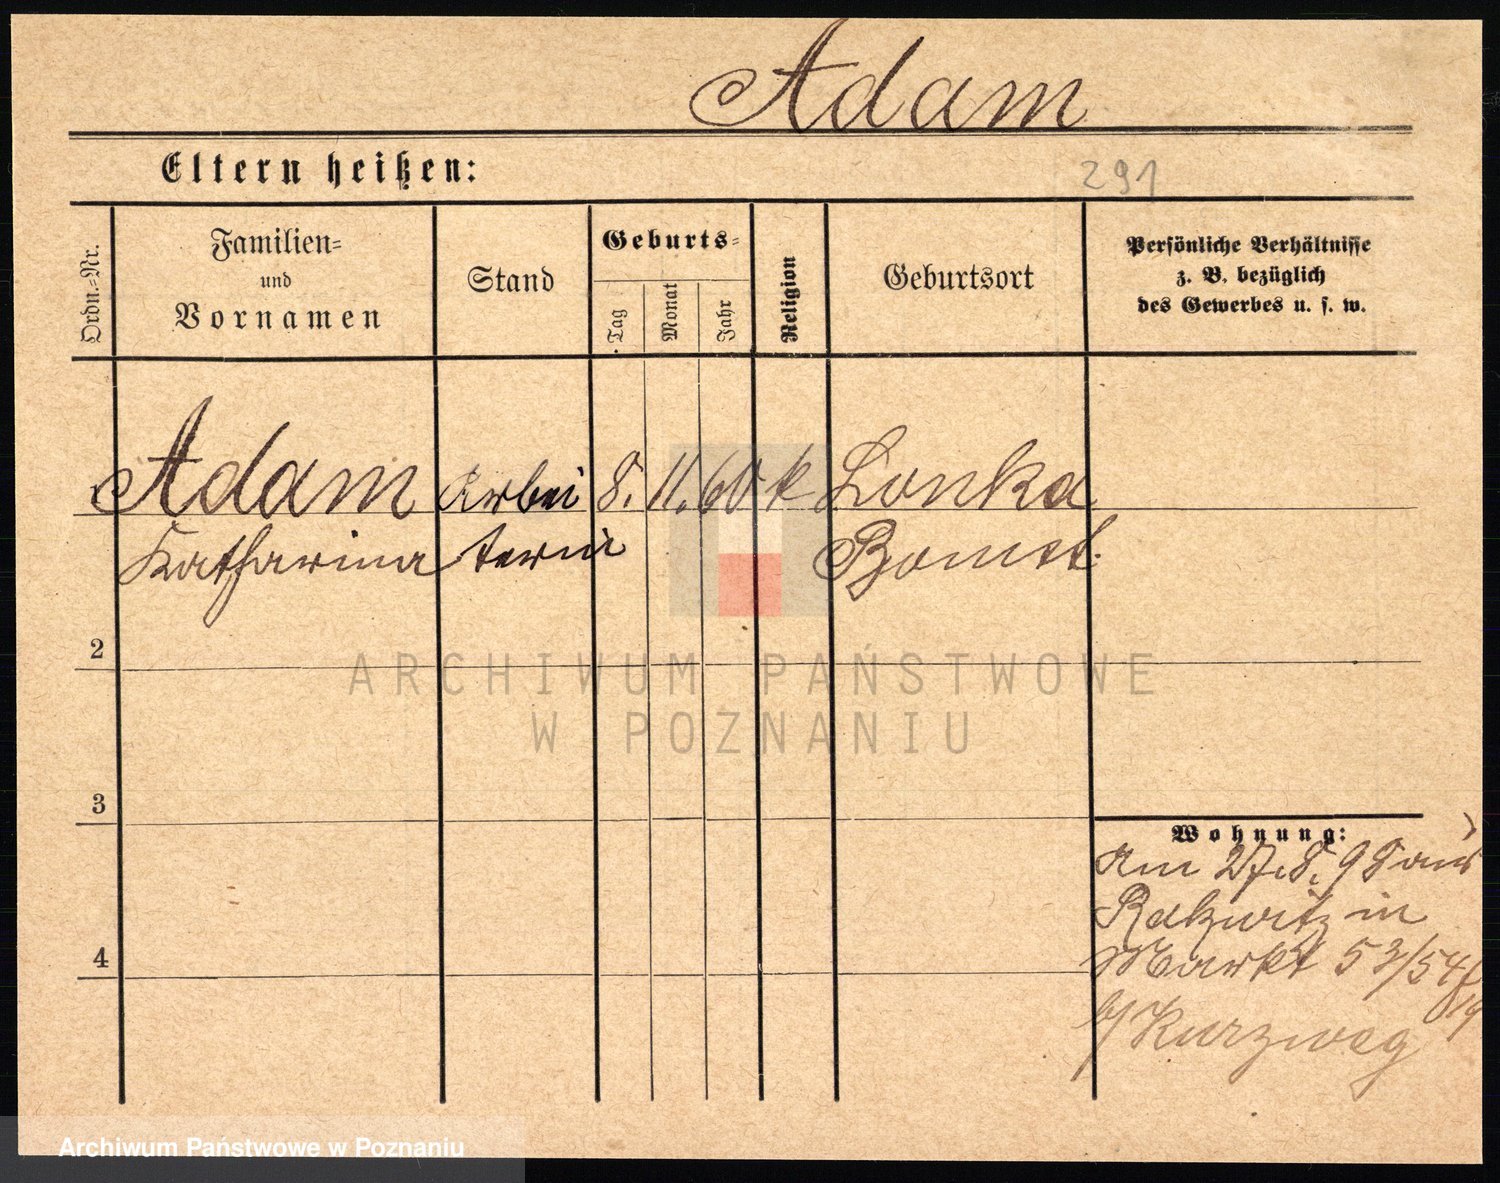 Adam
Eltern heißen:
291
Ordn.-Nr.
Familien-
und
Vornamen
Stand
Geburts-
Tag
Monat
Jahr
Religion
Geburtsort
Persönliche Verhältnisse
z. B. bezüglich
des Gewerbes u. s. w.
Adam Arbei 8. 11. 60 k Lonka
Katharina terin Bomst.
2
ARCHIWUM PAŃSTWOWE
W POZNANIU
3
Wohnung:
Am 27.8.98 aus
Rakwitz in
Markt 53/54
b/ Kurzweg
4
Archiwum Państwowe w Poznaniu